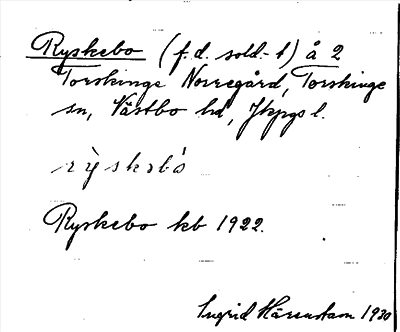 Ryskebo (f.d. sold.-t) å 2
Torskinge Norregård, Torskinge
sn, Västbo hd, Jkpgs l.
Ryskebo kb 1922.
Ingrid Härenstam 1930